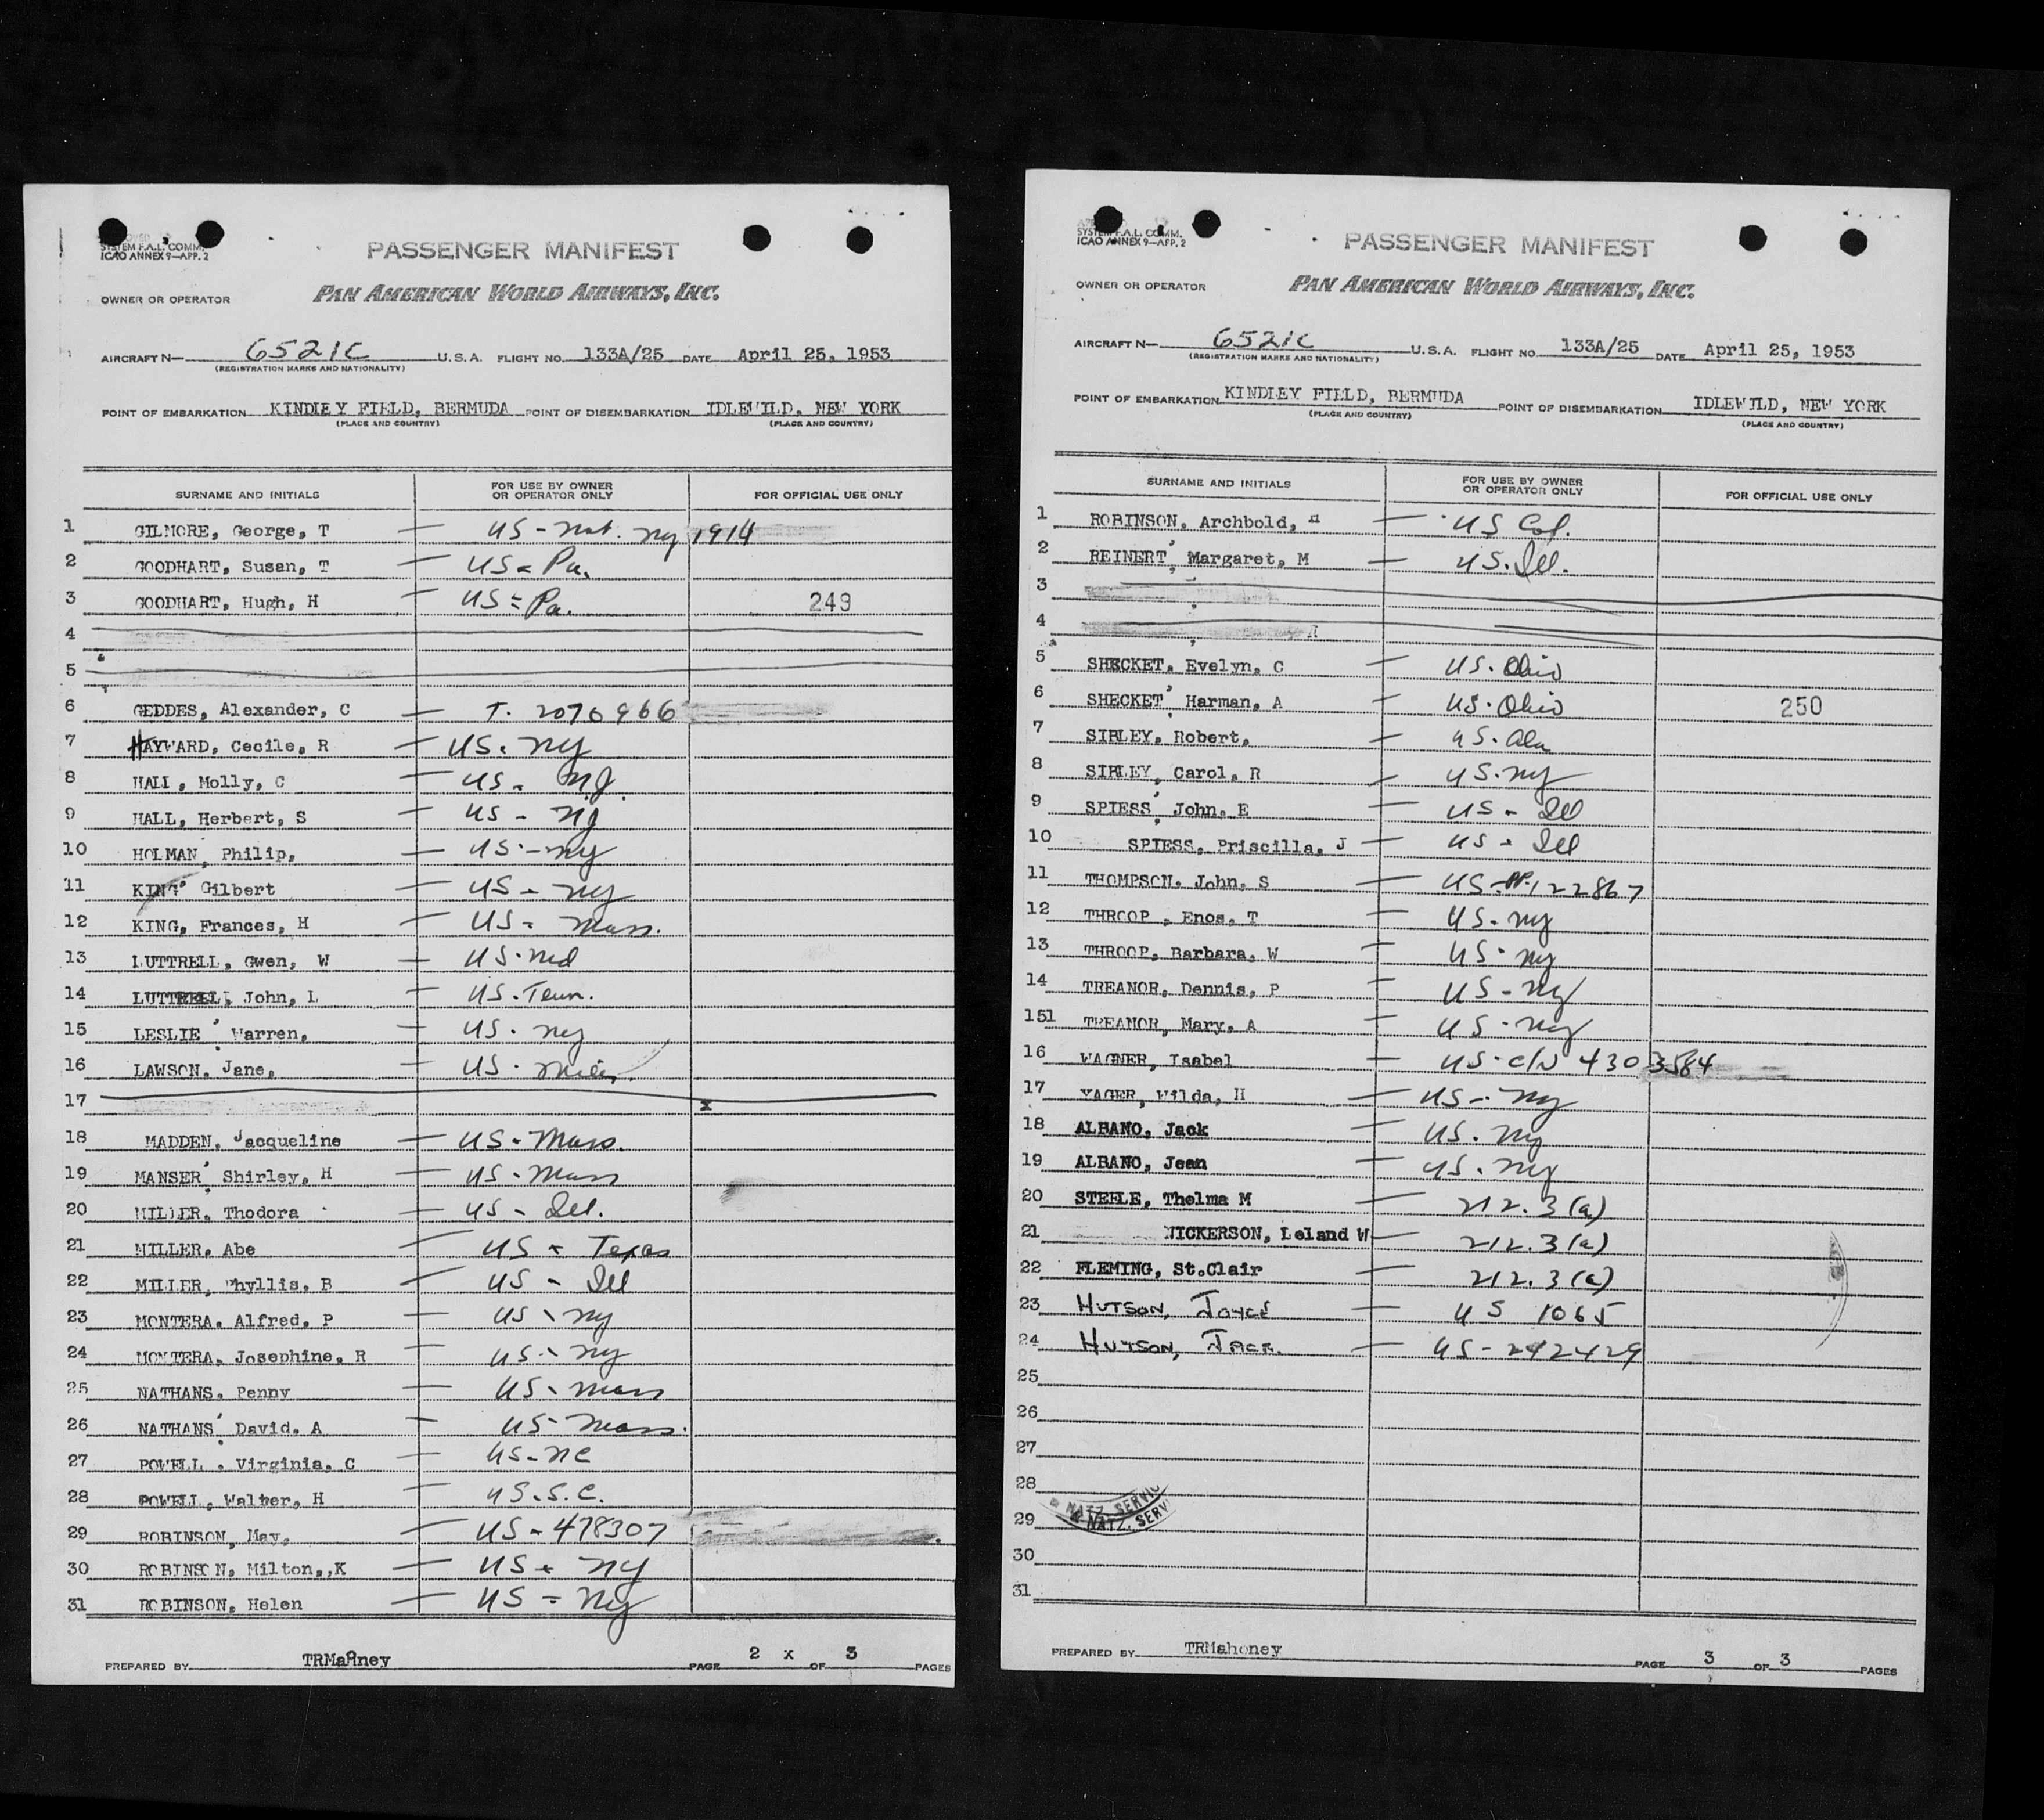 SYSTEM F.A.L. COMM.
ICAO ANNEX 9—APP. 2
PASSENGER MANIFEST
OWNER OR OPERATOR
PAN AMERICAN WORLD AIRWAYS, INC.
AIRCRAFT N— 6521C U.S.A. FLIGHT NO. 133A/25 DATE April 25, 1953
(REGISTRATION MARKS AND NATIONALITY)
POINT OF EMBARKATION KINDLEY FIELD, BERMUDA POINT OF DISEMBARKATION IDLEWILD, NEW YORK
(PLACE AND COUNTRY) (PLACE AND COUNTRY)
SURNAME AND INITIALS FOR USE BY OWNER OR OPERATOR ONLY FOR OFFICIAL USE ONLY
1 GILMORE, George, T — US - nat. ny 1914
2 GOODHART, Susan, T — US - Pa.
3 GOODHART, Hugh, H — US = Pa. 249
4
5
6 GEDDES, Alexander, C — T. 2070966
7 HAYWARD, Cecile, R — US. NY
8 HALL, Molly, C — US. NJ.
9 HALL, Herbert, S — US - NJ
10 HOLMAN, Philip, — US - NY
11 KING, Gilbert — US - NY
12 KING, Frances, H — US - Mass.
13 LUTTRELL, Gwen, W — US. Md
14 LUTTRELL, John, L — US. Tenn.
15 LESLIE, Warren, — US. NY
16 LAWSON, Jane, — US.
17 x
18 MADDEN, Jacqueline — US - Mass.
19 MANSER, Shirley, H — US - Mass
20 MILLER, Thodora — US - Ill.
21 MILLER, Abe — US - Texas
22 MILLER, Phyllis, B — US - Ill
23 MONTERA, Alfred, P — US - NY
24 MONTERA, Josephine, R — US - NY
25 NATHANS, Penny — US - Mass
26 NATHANS, David, A — US - Mass.
27 POWELL, Virginia, C — US - NC
28 POWELL, Walter, H — US. S.C.
29 ROBINSON, May, — US - 478307
30 ROBINSON, Milton,,K — US - NY
31 ROBINSON, Helen — US = NY
PREPARED BY TRMahney PAGE 2 x OF 3 PAGES
SYSTEM F.A.L. COMM.
ICAO ANNEX 9—APP. 2
PASSENGER MANIFEST
OWNER OR OPERATOR
PAN AMERICAN WORLD AIRWAYS, INC.
AIRCRAFT N— 6521C U.S.A. FLIGHT NO. 133A/25 DATE April 25, 1953
(REGISTRATION MARKS AND NATIONALITY)
POINT OF EMBARKATION KINDLEY FIELD, BERMUDA POINT OF DISEMBARKATION IDLEWILD, NEW YORK
(PLACE AND COUNTRY) (PLACE AND COUNTRY)
SURNAME AND INITIALS FOR USE BY OWNER OR OPERATOR ONLY FOR OFFICIAL USE ONLY
1 ROBINSON, Archbold, — US Cal.
2 REINERT, Margaret, M — US. Ill.
3
4
5 SHECKET, Evelyn, C — US. Ohio
6 SHECKET, Harman, A — US. Ohio 250
7 SIBLEY, Robert, — US. Ala
8 SIBLEY, Carol, R — US. NY
9 SPIESS, John, E — US - Ill
10 SPIESS, Priscilla, J — US - Ill
11 THOMPSON, John, S — US - PP. 122867
12 THROOP, Enos, T — US. NY
13 THROOP, Barbara, W — US - NY
14 TREANOR, Dennis, P — US - NY
151 TREANOR, Mary, A — US - NY
16 WAGNER, Isabel — US - C/N 4303584
17 YAGER, Wilda, H — US - NY
18 ALBANO, Jack — US. NY
19 ALBANO, Jean — US. NY
20 STEELE, Thelma M — 212.3(a)
21 NICKERSON, Leland W — 212.3(a)
22 FLEMING, St.Clair — 212.3(a)
23 HUTSON, JOYCE — US 1065
24 HUTSON, JACK. — US - 242429
25
26
27
28
NATZ. SERVIC
& NATZ. SERV
29
30
31
PREPARED BY TRMahoney PAGE 3 OF 3 PAGES